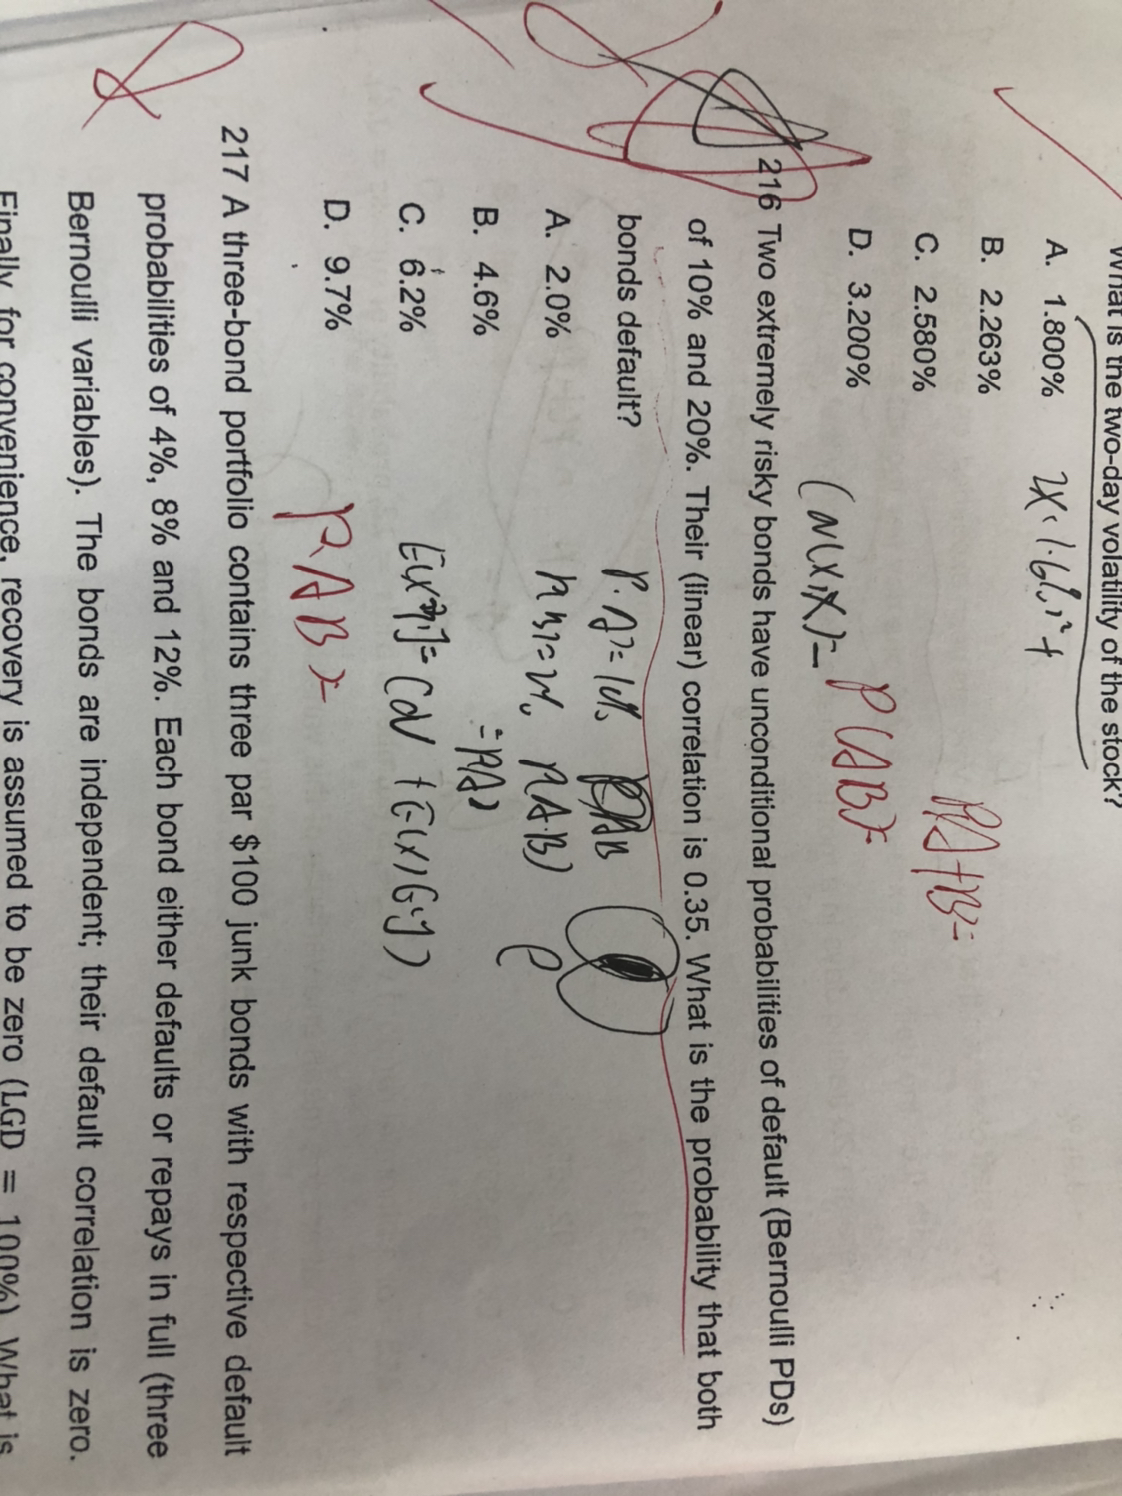 What is the two-day volatility of the stock?
A. 1.800%
B. 2.263%
C. 2.580%
D. 3.200%
216 Two extremely risky bonds have unconditional probabilities of default (Bernoulli PDs)
of 10% and 20%. Their (linear) correlation is 0.35. What is the probability that both
bonds default?
A. 2.0%
B. 4.6%
C. 6.2%
D. 9.7%
P(AB)=
217 A three-bond portfolio contains three par $100 junk bonds with respective default
probabilities of 4%, 8% and 12%. Each bond either defaults or repays in full (three
Bernoulli variables). The bonds are independent; their default correlation is zero.
Finally, for convenience, recovery is assumed to be zero (LGD = 100%). What is